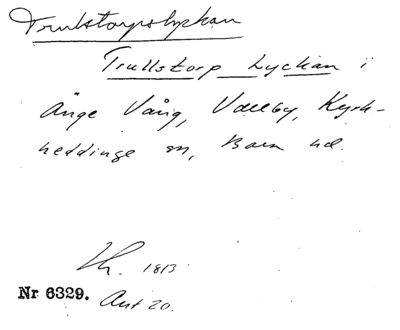 Trulstorpslyckan
Trullstorp Lyckan i
Änge Vång, Vallby, Kyrk-
heddinge sn, Bara hd.
Lh. 1813
Nr 6329. Akt 20.